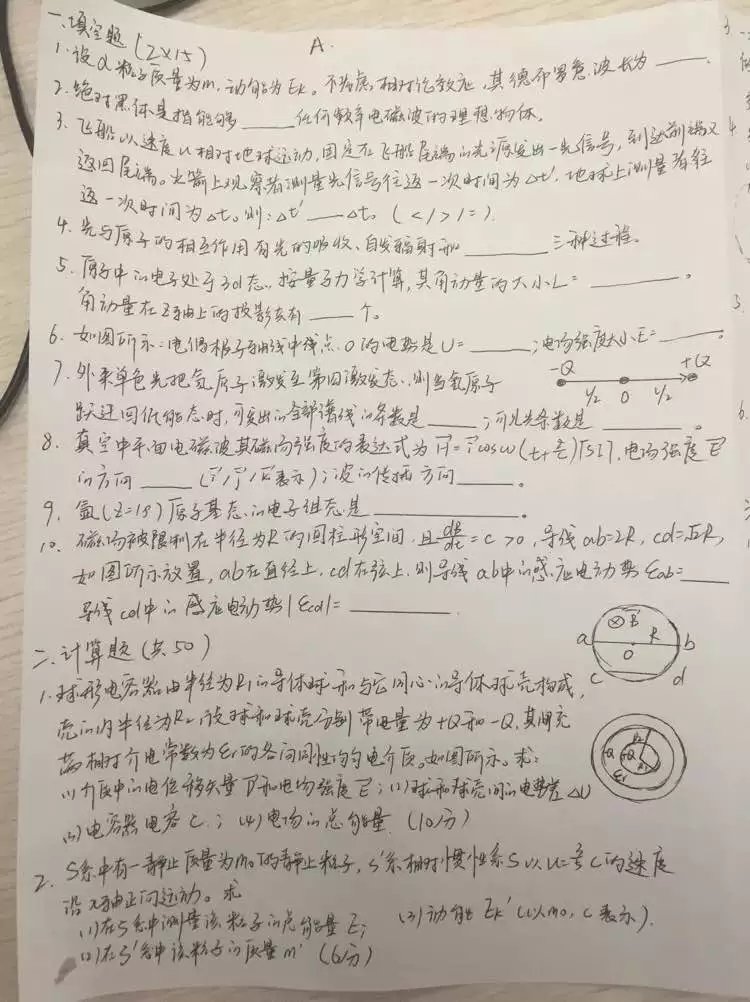 一、填空题(2×15) A.
1. 设α粒子质量为m,动能为Ek。不考虑相对论效应,其德布罗意波长为____.
2. 绝对黑体是指能够____任何频率电磁波的理想物体。
3. 飞船以速度u相对地球运动,固定在飞船尾端的光源发出一光信号,到达前端又
返回尾端。火箭上观察者测量光信号往返一次时间为Δt',地球上测量者往
返一次时间为Δt。则:Δt'____Δt。(</>/=).
4. 光与原子的相互作用有光的吸收、自发辐射和________三种过程。
5. 原子中的电子处于3d态。按量子力学计算,其角动量的大小L=________。
角动量在Z轴上的投影有____个。
6. 如图所示:电偶极子轴线中点O的电势是U=______;电场强度大小E=______。
-Q +Q
l/2 O l/2
7. 外来单色光把氢原子激发至第四激发态,则当氢原子
跃迁回低能态时,可发出的全部谱线的条数是______;可见光条数是______。
8. 真空中平面电磁波其磁场强度的表达式为H=i cosω(t+z/c)[SI],电场强度E
的方向____(i/j/k表示);波的传播方向____。
9. 氩(Z=18)原子基态的电子组态是____________。
10. 磁场被限制在半径为R的圆柱形空间,且dB/dt=c>0,导线ab=2R,cd=√2R,
如图所示放置,ab在直径上,cd在弦上,则导线ab中的感应电动势εab=____
导线cd中的感应电动势|εcd|=________.
⊗B R
a O b
c d
二、计算题(共50)
1. 球形电容器由半径为R1的导体球和与它同心的导体球壳构成,
壳的内半径为R2,设球和球壳分别带电量为+Q和-Q,其间充
满相对介电常数为εr的各向同性均匀电介质。如图所示。求:
(1)介质中的电位移矢量D和电场强度E;(2)球和球壳间的电势差ΔU
(3)电容器电容C;(4)电场的总能量.(10分)
-Q +Q R2 R1 εr
2. S系中有一静止质量为m0的静止粒子,S'系相对惯性系S以u=
c的速度
沿x轴正向运动。求
(1)在S系中测量该粒子的总能量E; (3)动能Ek'(以m0,c表示).
(2)在S'系中该粒子的质量m' (6分)